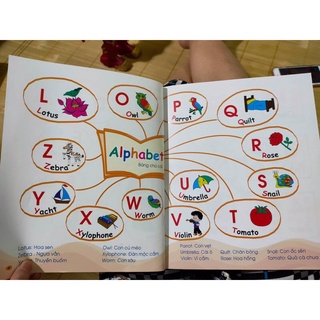 L
Lotus
O
Owl
P
Parrot
Q
Quilt
Z
Zebra
Alphabet
Bảng chữ cái
R
Rose
Y
Yacht
X
Xylophone
W
Worm
U
Umbrella
S
Snail
V
Violin
T
Tomato
Lotus: Hoa sen
Owl: Con cú mèo
Parrot: Con vẹt
Quilt: Chăn bông
Snail: Con ốc sên
Zebra: Ngựa vằn
Xylophone: Đàn mộc cầm
Umbrella: Cái ô
Rose: Hoa hồng
Tomato: Quả cà chua
Thuyền buồm
Worm: Con sâu
Violin: Vĩ cầm